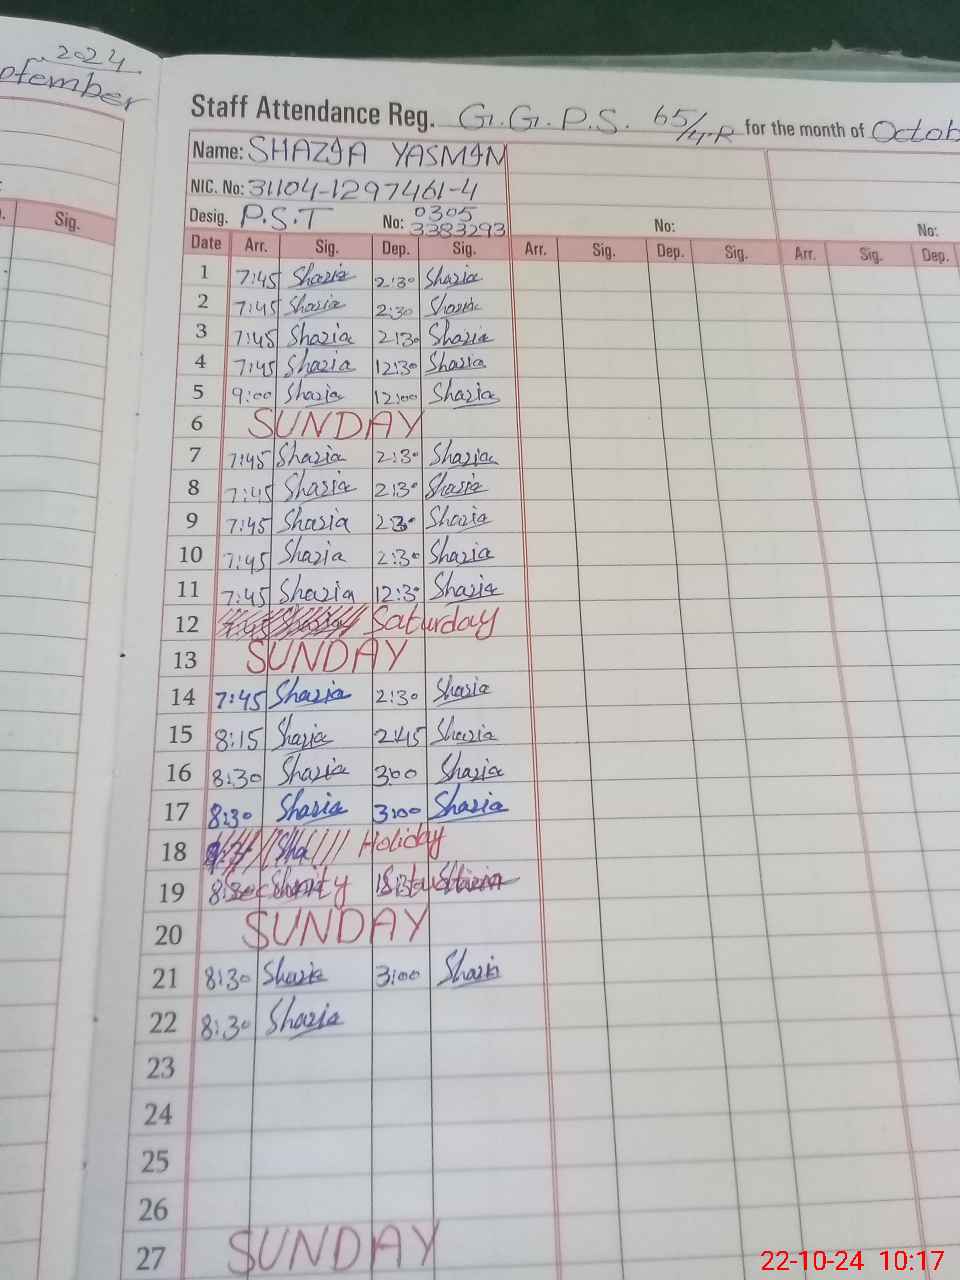 2024
Staff Attendance Reg. G.G.P.S. 65/4-R for the month of Octob
Name: SHAZIA YASMIN
NIC. No: 31104-1297461-4
Desig. P.S.T No: 0305 3383293 No: No:
Sig.
Date Arr. Sig. Dep. Sig. Arr. Sig. Dep. Sig. Arr. Sig. Dep.
1 7:45 Shazia 2:30 Shazia
2 7:45 Shazia 2:30 Shazia
3 7:45 Shazia 2:30 Shazia
4 7:45 Shazia 12:30 Shazia
5 9:00 Shazia 12:00 Shazia
6 SUNDAY
7 7:45 Shazia 2:30 Shazia
8 7:45 Shazia 2:30 Shazia
9 7:45 Shazia 2:30 Shazia
10 7:45 Shazia 2:30 Shazia
11 7:45 Shazia 12:30 Shazia
12 Saturday
13 SUNDAY
14 7:45 Shazia 2:30 Shazia
15 8:15 Shazia 2:45 Shazia
16 8:30 Shazia 3:00 Shazia
17 8:30 Shazia 3:00 Shazia
18 Holiday
19
20 SUNDAY
21 8:30 Shazia 3:00 Shazia
22 8:30 Shazia
23
24
25
26
27 SUNDAY
22-10-24 10:17